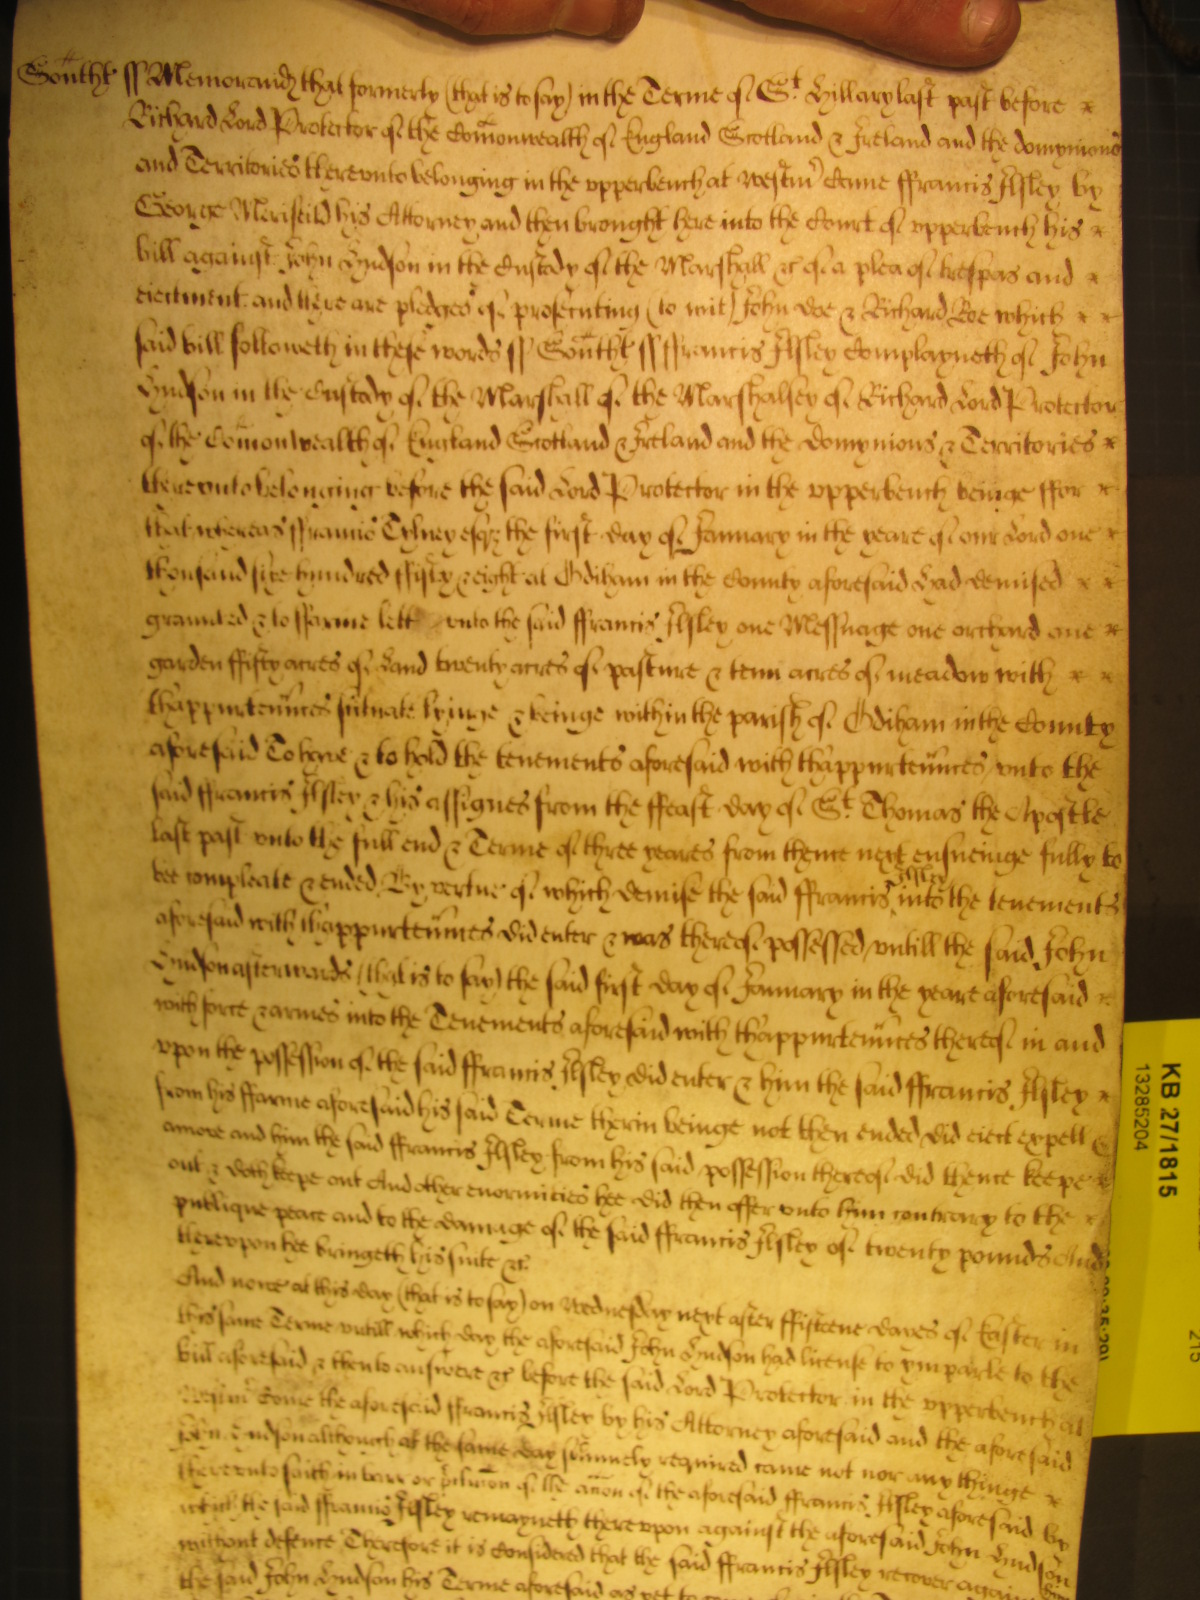 Southt ss Memorand that formerly (that is to say) in the Terme of St. Hillary last past before
Richard Lord Protector of the Comonwealth of England Scotland & Ireland and the domynions
and Territories therevnto belonging in the vpperbench at Westmr Came ffrancis Ilsley by
George Meriseild his Attorney and then brought here into the Court of vpperbench his
bill against John Lyndson in the Custody of the Marshall &c of a plea of trespas and
eiectment and there are pledges of prosecuting (to wit) John Doe & Richard Roe which
said bill followeth in these words ss Southt ss ffrancis Ilsley Complayneth of John
Lyndson in the Custody of the Marshall of the Marshalsey of Richard Lord Protector
of the Comonwealth of England Scotland & Ireland and the Domynions & Territories
therevnto belonging before the said Lord Protector in the vpperbench beinge ffor
that whereas ffrancis Tylney esqr the first day of January in the yeare of our Lord one
thousand six hundred ffifty & eight at Odiham in the County aforesaid Had demised
graunted & to ffarme lett vnto the said ffrancis Ilsley one Messuage one orchard one
garden ffifty acres of Land twenty acres of pasture & tenn acres of meadow with
thappurtennces situate lyinge & beinge within the parish of Odiham in the County
aforesaid To have & to hold the tenements aforesaid with thappurtennces vnto the
said ffrancis Ilsley & his assignes from the ffeast day of St. Thomas the Apostle
last past vnto the full end & Terme of three yeares from thence next ensueinge fully to
bee compleate & ended By vertue of which demise the said ffrancis Ilsley into the tenements
aforesaid with thappurtennces did enter & was thereof possessed vntill the said John
Lyndson afterwards (that is to say) the said first day of January in the yeare aforesaid
with force & armes into the Tenements aforesaid with thappurtennces thereof in and
vpon the possession of the said ffrancis Ilsley did enter & him the said ffrancis Ilsley
from his ffarme aforesaid his said Terme therin beinge not then ended did eiect expell &
amove and him the said ffrancis Ilsley from his said possession thereof did thence keepe
out & doth keepe out And other enormities hee did then offer vnto him contrary to the
publique peace and to the damage of the said ffrancis Ilsley of twenty pounds And
therevpon hee bringeth his suite &c
And nowe at this day (that is to say) on Wednesday next after ffifteene dayes of Easter in
this same Terme vntill which day the aforesaid John Lyndson had license to ymparle to the
bill aforesaid & then to answere &c before the said Lord Protector in the vpperbench at
Westmr Come the aforesaid ffrancis Ilsley by his Attorney aforesaid and the aforesaid
John Lyndson although at the same day solemnely required came not nor any thinge
therevnto saith in barr or of the accon of the aforesaid ffrancis Ilsley aforesaid by
which the said ffrancis Ilsley remayneth therevpon against the aforesaid John Lyndson
without defence Therefore it is Considered that the said ffrancis Ilsley recover against
the said John Lyndson his Terme aforesaid as yet to come
KB 27/1815
13285204
215